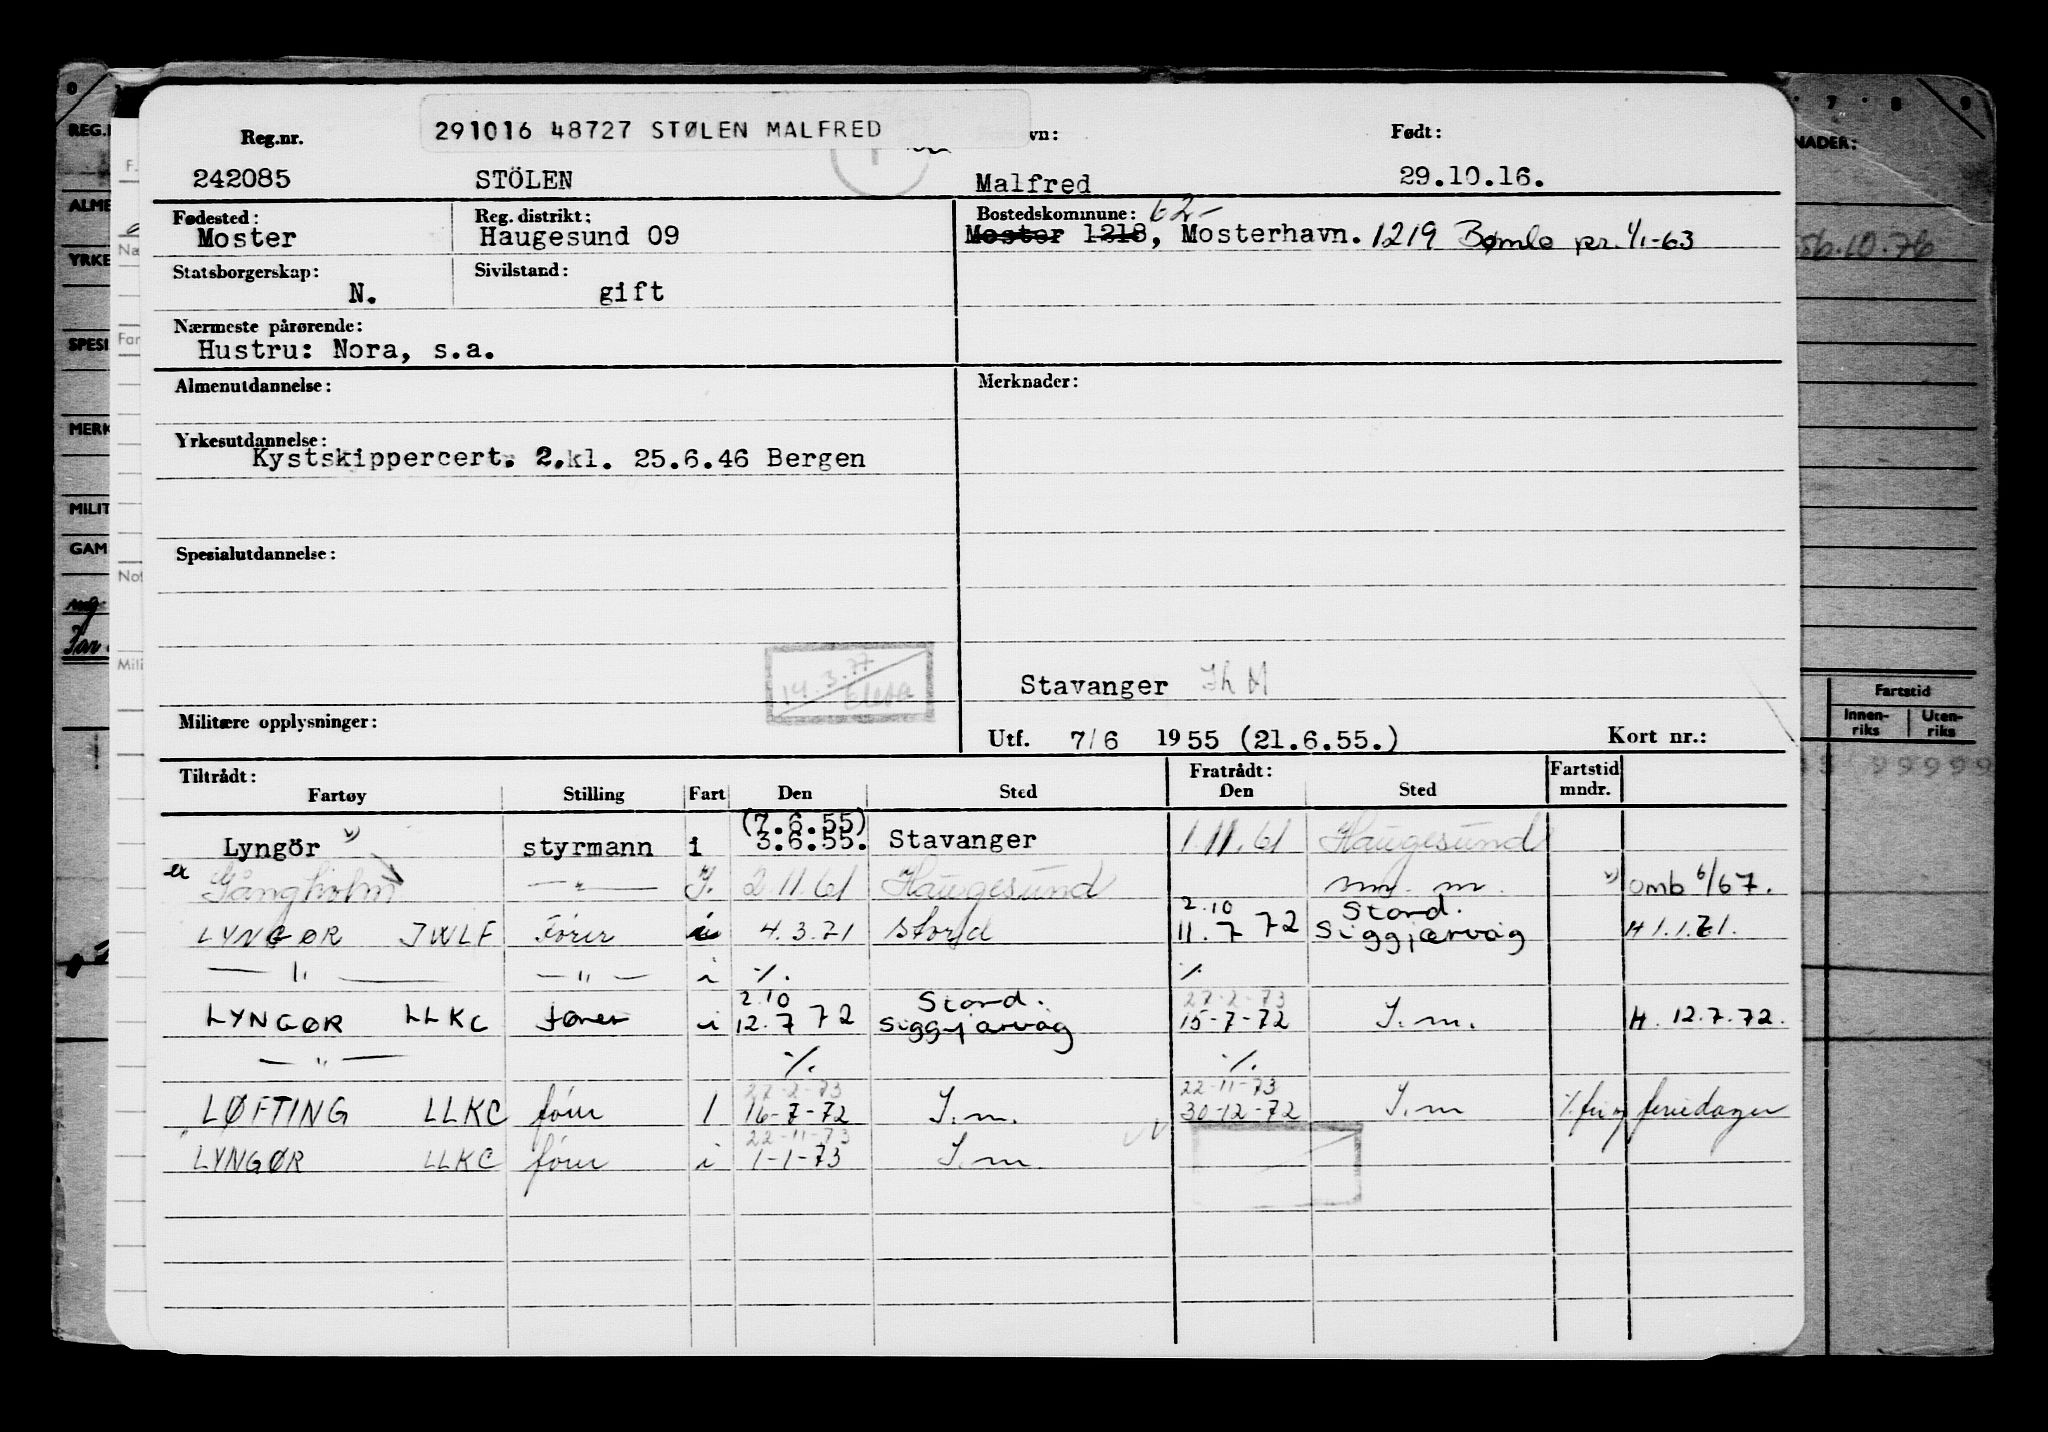 291016 48727 STØLEN MALFRED
Reg.nr. vn: Født:
242085 STÖLEN Malfred 29.10.16.
Fødested: Reg. distrikt: Bostedskommune: 62-
Moster Haugesund 09 Moster 1218, Mosterhavn. 1219 Bømlo pr. 1/1-63
Statsborgerskap: Sivilstand:
N. gift
Nærmeste pårørende:
Hustru: Nora, s.a.
Almenutdannelse: Merknader:
Yrkesutdannelse:
Kystskippercert. 2.kl. 25.6.46 Bergen
Spesialutdannelse:
14.3.77
Stavanger
Militære opplysninger:
Utf. 7/6 1955 (21.6.55.) Kort nr.:
Tiltrådt: Fratrådt: Fartstid
Fartøy Stilling Fart Den Sted Den Sted mndr.
(7.6.55)
Lyngör styrmann i 3.6.55. Stavanger 1.11.61 Haugesund
ex Gangholm — " — I. 2.11.61 Haugesund omb 6/67.
2.10 Stord.
LYNGØR JWLF Fører i 4.3.71 Stord 11.7 72 Siggjærvåg H 1.1.71.
— " — — " — i ./. ./.
2.10 Stord. 27-2-73
LYNGØR LLKC fører i 12.7 72 Siggjarvåg 15-7-72 I.m. H. 12.7.72.
— " — ./. ./.
27-2-73 22-11-73
LØFTING LLKC fører I 16-7-72 I.m. 30-12-72 I.m ./. fri og feriedager
22-11-73
LYNGØR LLKC fører i 1-1-73 I.m.
0
REG.
ALME
YRKE
SPESI
MERK
MILIT
GAM
F.
Næ
Far
Not
Mili
7 8 9
NADER:
10.76
Fartstid
Innen-
riks
Uten-
riks
99999